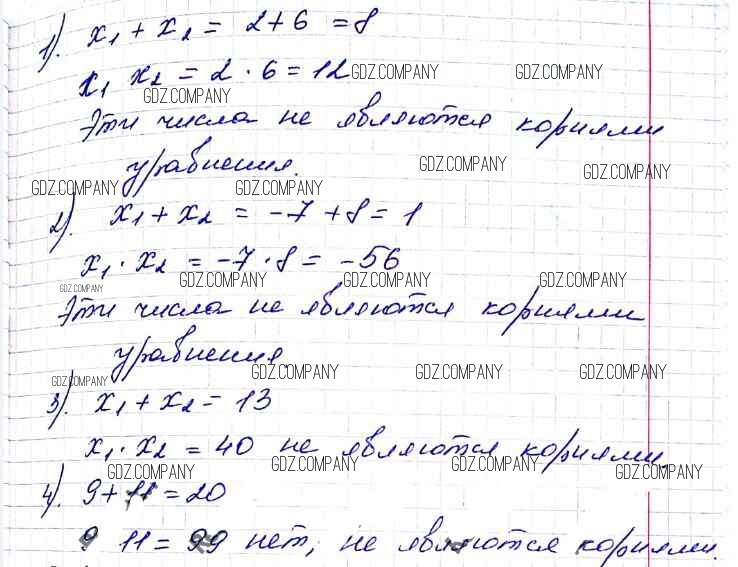 1). x₁ + x₂ = 2+6 = 8
x₁ x₂ = 2 · 6 = 12 GDZ.COMPANY GDZ.COMPANY
GDZ.COMPANY
Эти числа не являются корнями
уравнения. GDZ.COMPANY GDZ.COMPANY
GDZ.COMPANY GDZ.COMPANY
2). x₁ + x₂ = -7 + 8 = 1
x₁ · x₂ = -7 · 8 = -56
GDZ.COMPANY GDZ.COMPANY GDZ.COMPANY GDZ.COMPANY
Эти числа не являются корнями
уравнения.
GDZ.COMPANY GDZ.COMPANY GDZ.COMPANY GDZ.COMPANY
3). x₁ + x₂ = 13
x₁ · x₂ = 40 не являются корнями.
GDZ.COMPANY GDZ.COMPANY GDZ.COMPANY GDZ.COMPANY
4). 9 + 11 = 20
9 11 = 99 нет, не являются корнями.